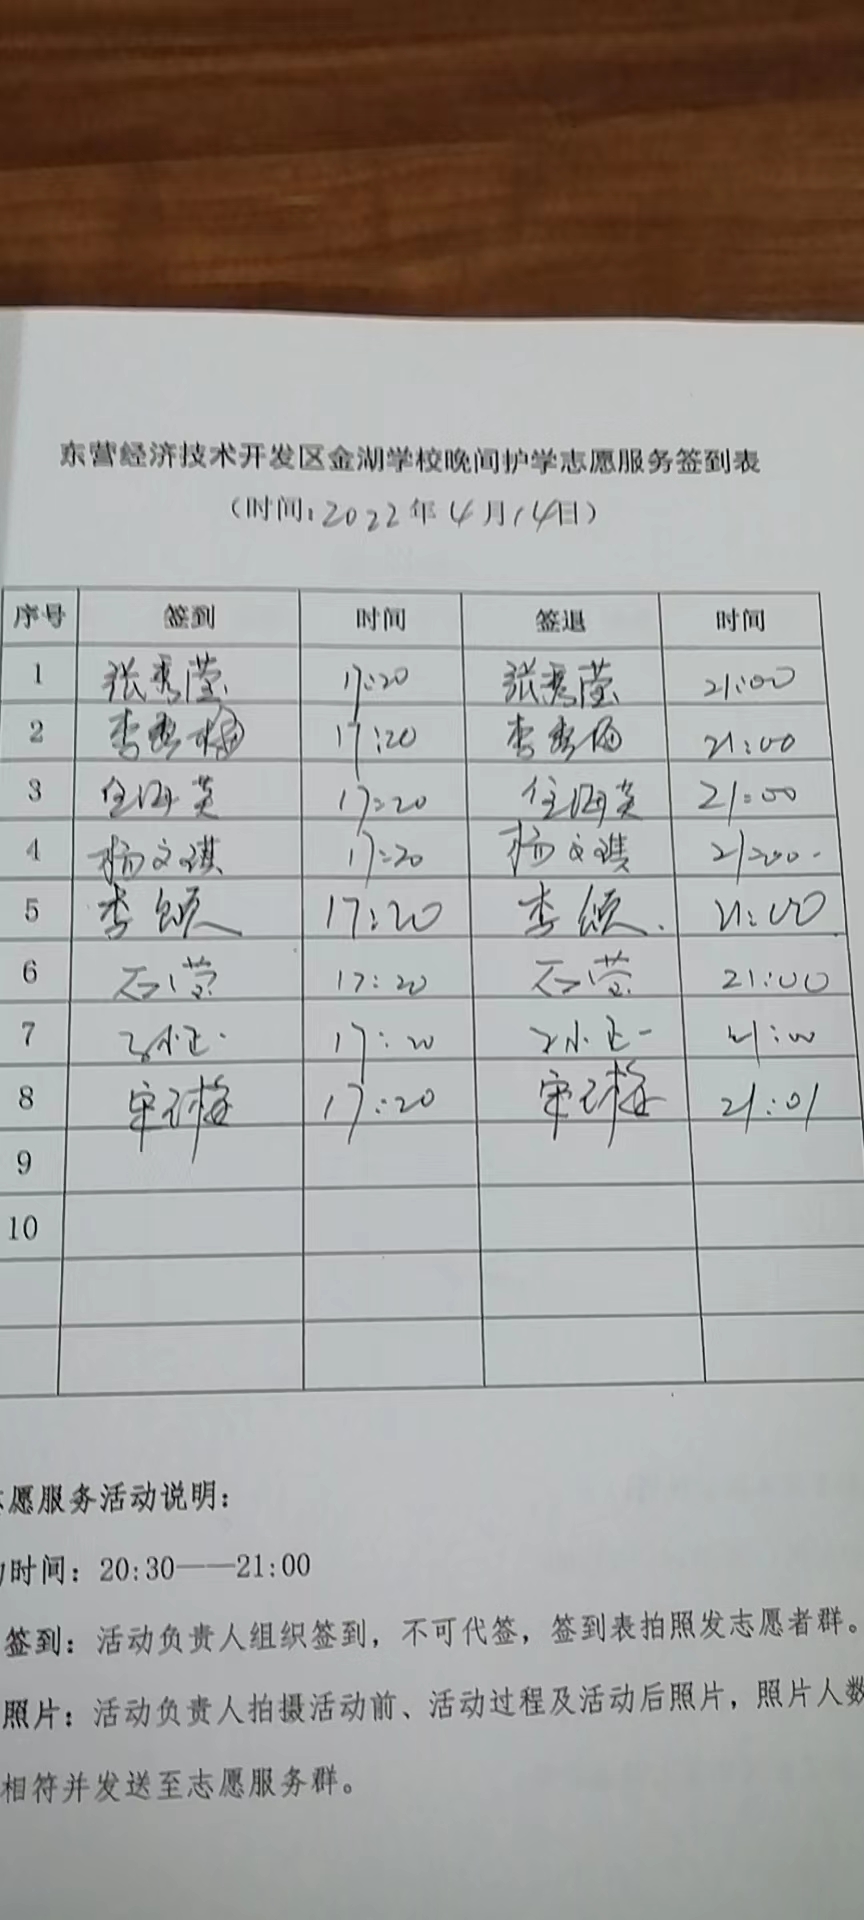 东营经济技术开发区金湖学校晚间护学志愿服务签到表
（时间：2022年4月14日）
序号 签到 时间 签退 时间
1 张秀莹 17:20 张秀莹 21:00
2 李秀梅 17:20 李秀梅 21:00
3 任海英 17:20 任海英 21:00
4 杨文琪 17:20 杨文琪 21:00
5 李颂 17:20 李颂 21:00
6 石莹 17:20 石莹 21:00
7 17:20 21:00
8 宋梅 17:20 宋梅 21:01
9
10
志愿服务活动说明：
时间：20:30——21:00
签到：活动负责人组织签到，不可代签，签到表拍照发志愿者群。
照片：活动负责人拍摄活动前、活动过程及活动后照片，照片人数
相符并发送至志愿服务群。